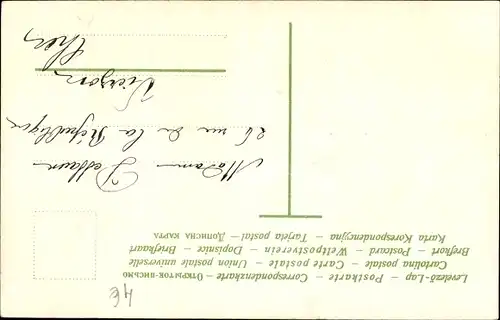 Levelező-Lap – Postkarte – Correspondenzkarte – ОТКРЫТОЕ ПИСЬМО
Cartolina postale – Carte postale – Union postale universelle
Brefkort – Postcard – Weltpostverein – Dopisnice – Briefkaart
Karta Korespondencyjna – Tarjeta postal – ДОПИСНА КАРТА
Madame
26 rue de la République
Vierzon
Cher